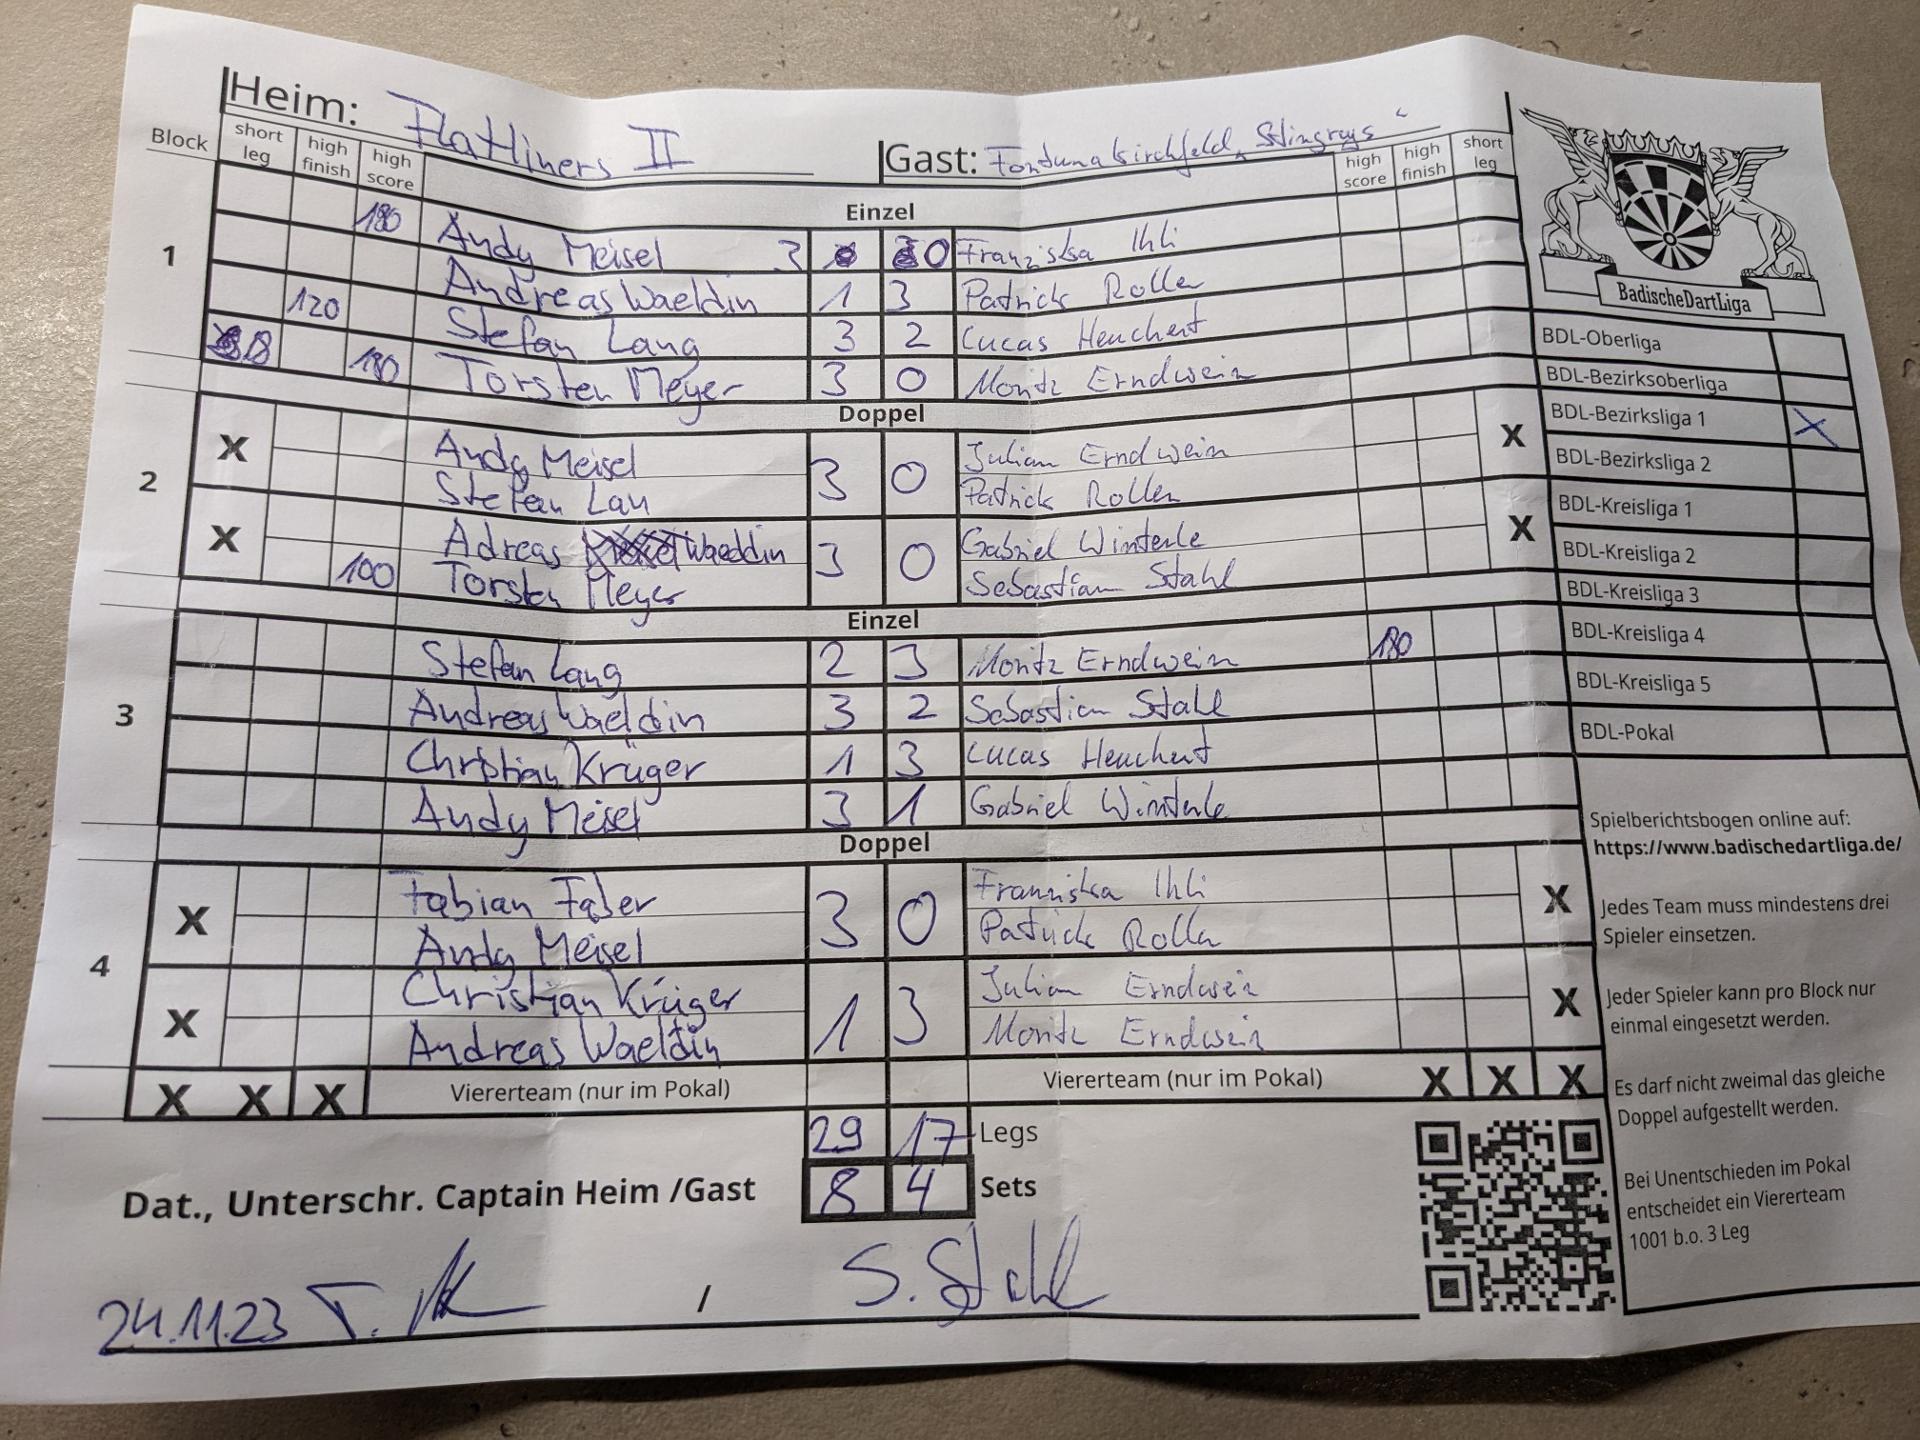 Heim: Flatliners II
Gast: Fortuna Kirchfeld "Stingrays"
Block short leg high finish high score
high score high finish short leg
Einzel
1
180 Andy Meisel 3 0 Franziska Ihli
Andreas Waeldin 1 3 Patrick Roller
120 Stefan Lang 3 2 Lucas Heuchert
18 180 Torsten Meyer 3 0 Moritz Erndwein
Doppel
2
X Andy Meisel 3 0 Julian Erndwein X
Stefan Lau Patrick Roller
X Adreas Waeldin 3 0 Gabriel Winterle X
100 Torsten Meyer Sebastian Stahl
Einzel
3
Stefan Lang 2 3 Moritz Erndwein 180
Andreas Waeldin 3 2 Sebastian Stahl
Christian Krüger 1 3 Lucas Heuchert
Andy Meisel 3 1 Gabriel Winterle
Doppel
4
X Fabian Faßer 3 0 Franziska Ihli X
Andy Meisel Patrick Roller
X Christian Krüger 1 3 Julian Erndwein X
Andreas Waeldin Moritz Erndwein
X X X Vierteam (nur im Pokal) Viererteam (nur im Pokal) X X X
29 17 Legs
Dat., Unterschr. Captain Heim /Gast 8 4 Sets
24.11.23 T. / S. Stahl
BadischeDartLiga
BDL-Oberliga
BDL-Bezirksoberliga
BDL-Bezirksliga 1 X
BDL-Bezirksliga 2
BDL-Kreisliga 1
BDL-Kreisliga 2
BDL-Kreisliga 3
BDL-Kreisliga 4
BDL-Kreisliga 5
BDL-Pokal
Spielberichtsbogen online auf:
https://www.badischedartliga.de/
Jedes Team muss mindestens drei
Spieler einsetzen.
Jeder Spieler kann pro Block nur
einmal eingesetzt werden.
Es darf nicht zweimal das gleiche
Doppel aufgestellt werden.
Bei Unentschieden im Pokal
entscheidet ein Viererteam
1001 b.o. 3 Leg